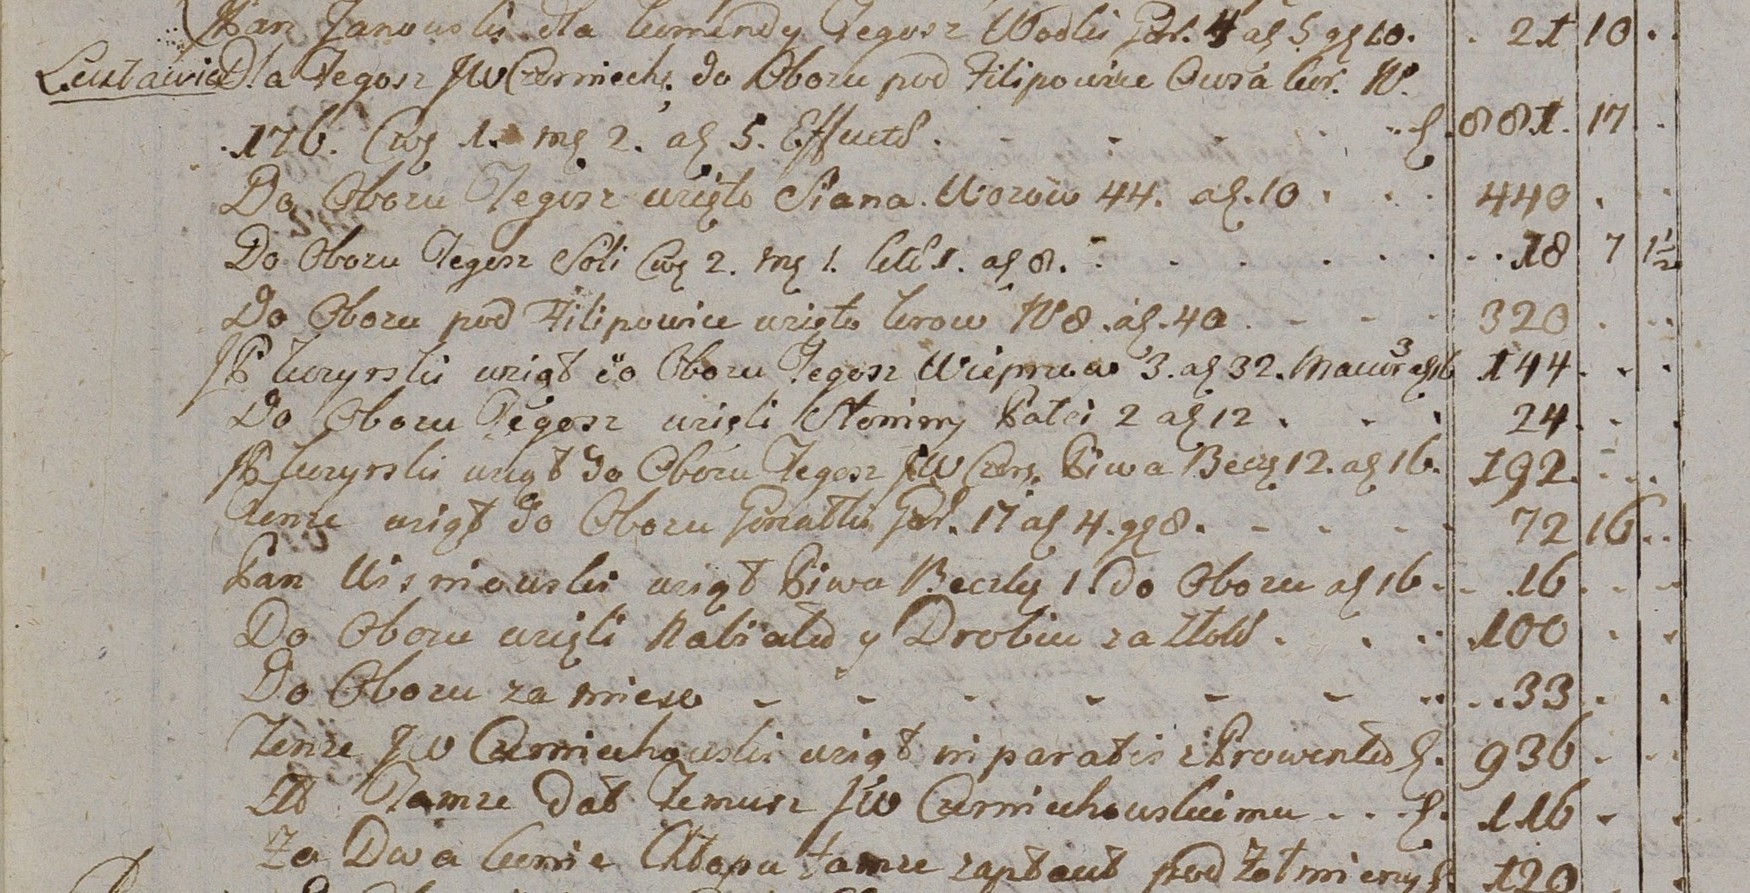 Pan Janowski dla kumendy Tegosz Wodki Gar. 4 aƒ 5 gƒ 10. 21 10
Lusławice Dla Tegosz JW Czerniech: do Obozu pod Filipowice Owsa kor. N.
176. Cwƒ 1. mƒ 2. aƒ 5. Effectt. f. 881. 17
Do Obozu Tegosz wzięto Siana Wozow 44. aƒ. 10 440
Do Obozu Tegosz Soli Cwƒ 2. mƒ 1. aƒ 8. 18 7 1½
Do Obozu pod Filipowice wzięto krow N 8. aƒ. 40 320
JP kuzyrski wziął do Obozu Tegosz Wieprzow 3. aƒ 32. 3 aƒ 16 144
Do Obozu Tegosz wzięli Słoniny Połci 2 aƒ 12 24
JP kuzyrski wziął do Obozu Tegosz JW Czer. Piwa Beczƒ 12. aƒ 16. 192
Tenże wziął do Obozu Gorzałki Gar. 17 aƒ 4. gƒ 8. 72 16
Pan Wisniowski wziął Piwa Beczkę 1. do Obozu aƒ 16 16
Do Obozu wzięli Nabiału y Drobiu za 100
Do Obozu za mięso 33
Tenże JW Czerniechowski wziął in paratis z Prowentu f. 936
Tamże dał Temusz JW Czerniechowskiemu f. 116
Za Dwa konie Chłopu tamże zapłacił pod Żołnierzy f. 120